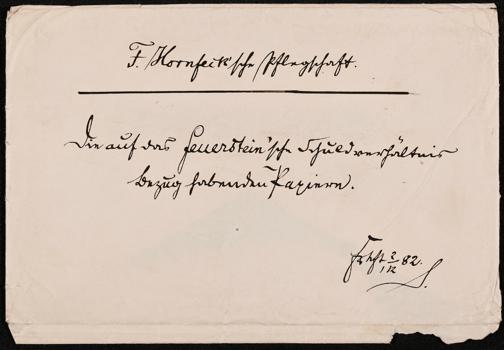 F. Hornfeck'sche Pflegschaft.
Die auf das Feuerstein'sche Schuldverhältnis
Bezug habenden Papiere.
Frkft 2/12 82.